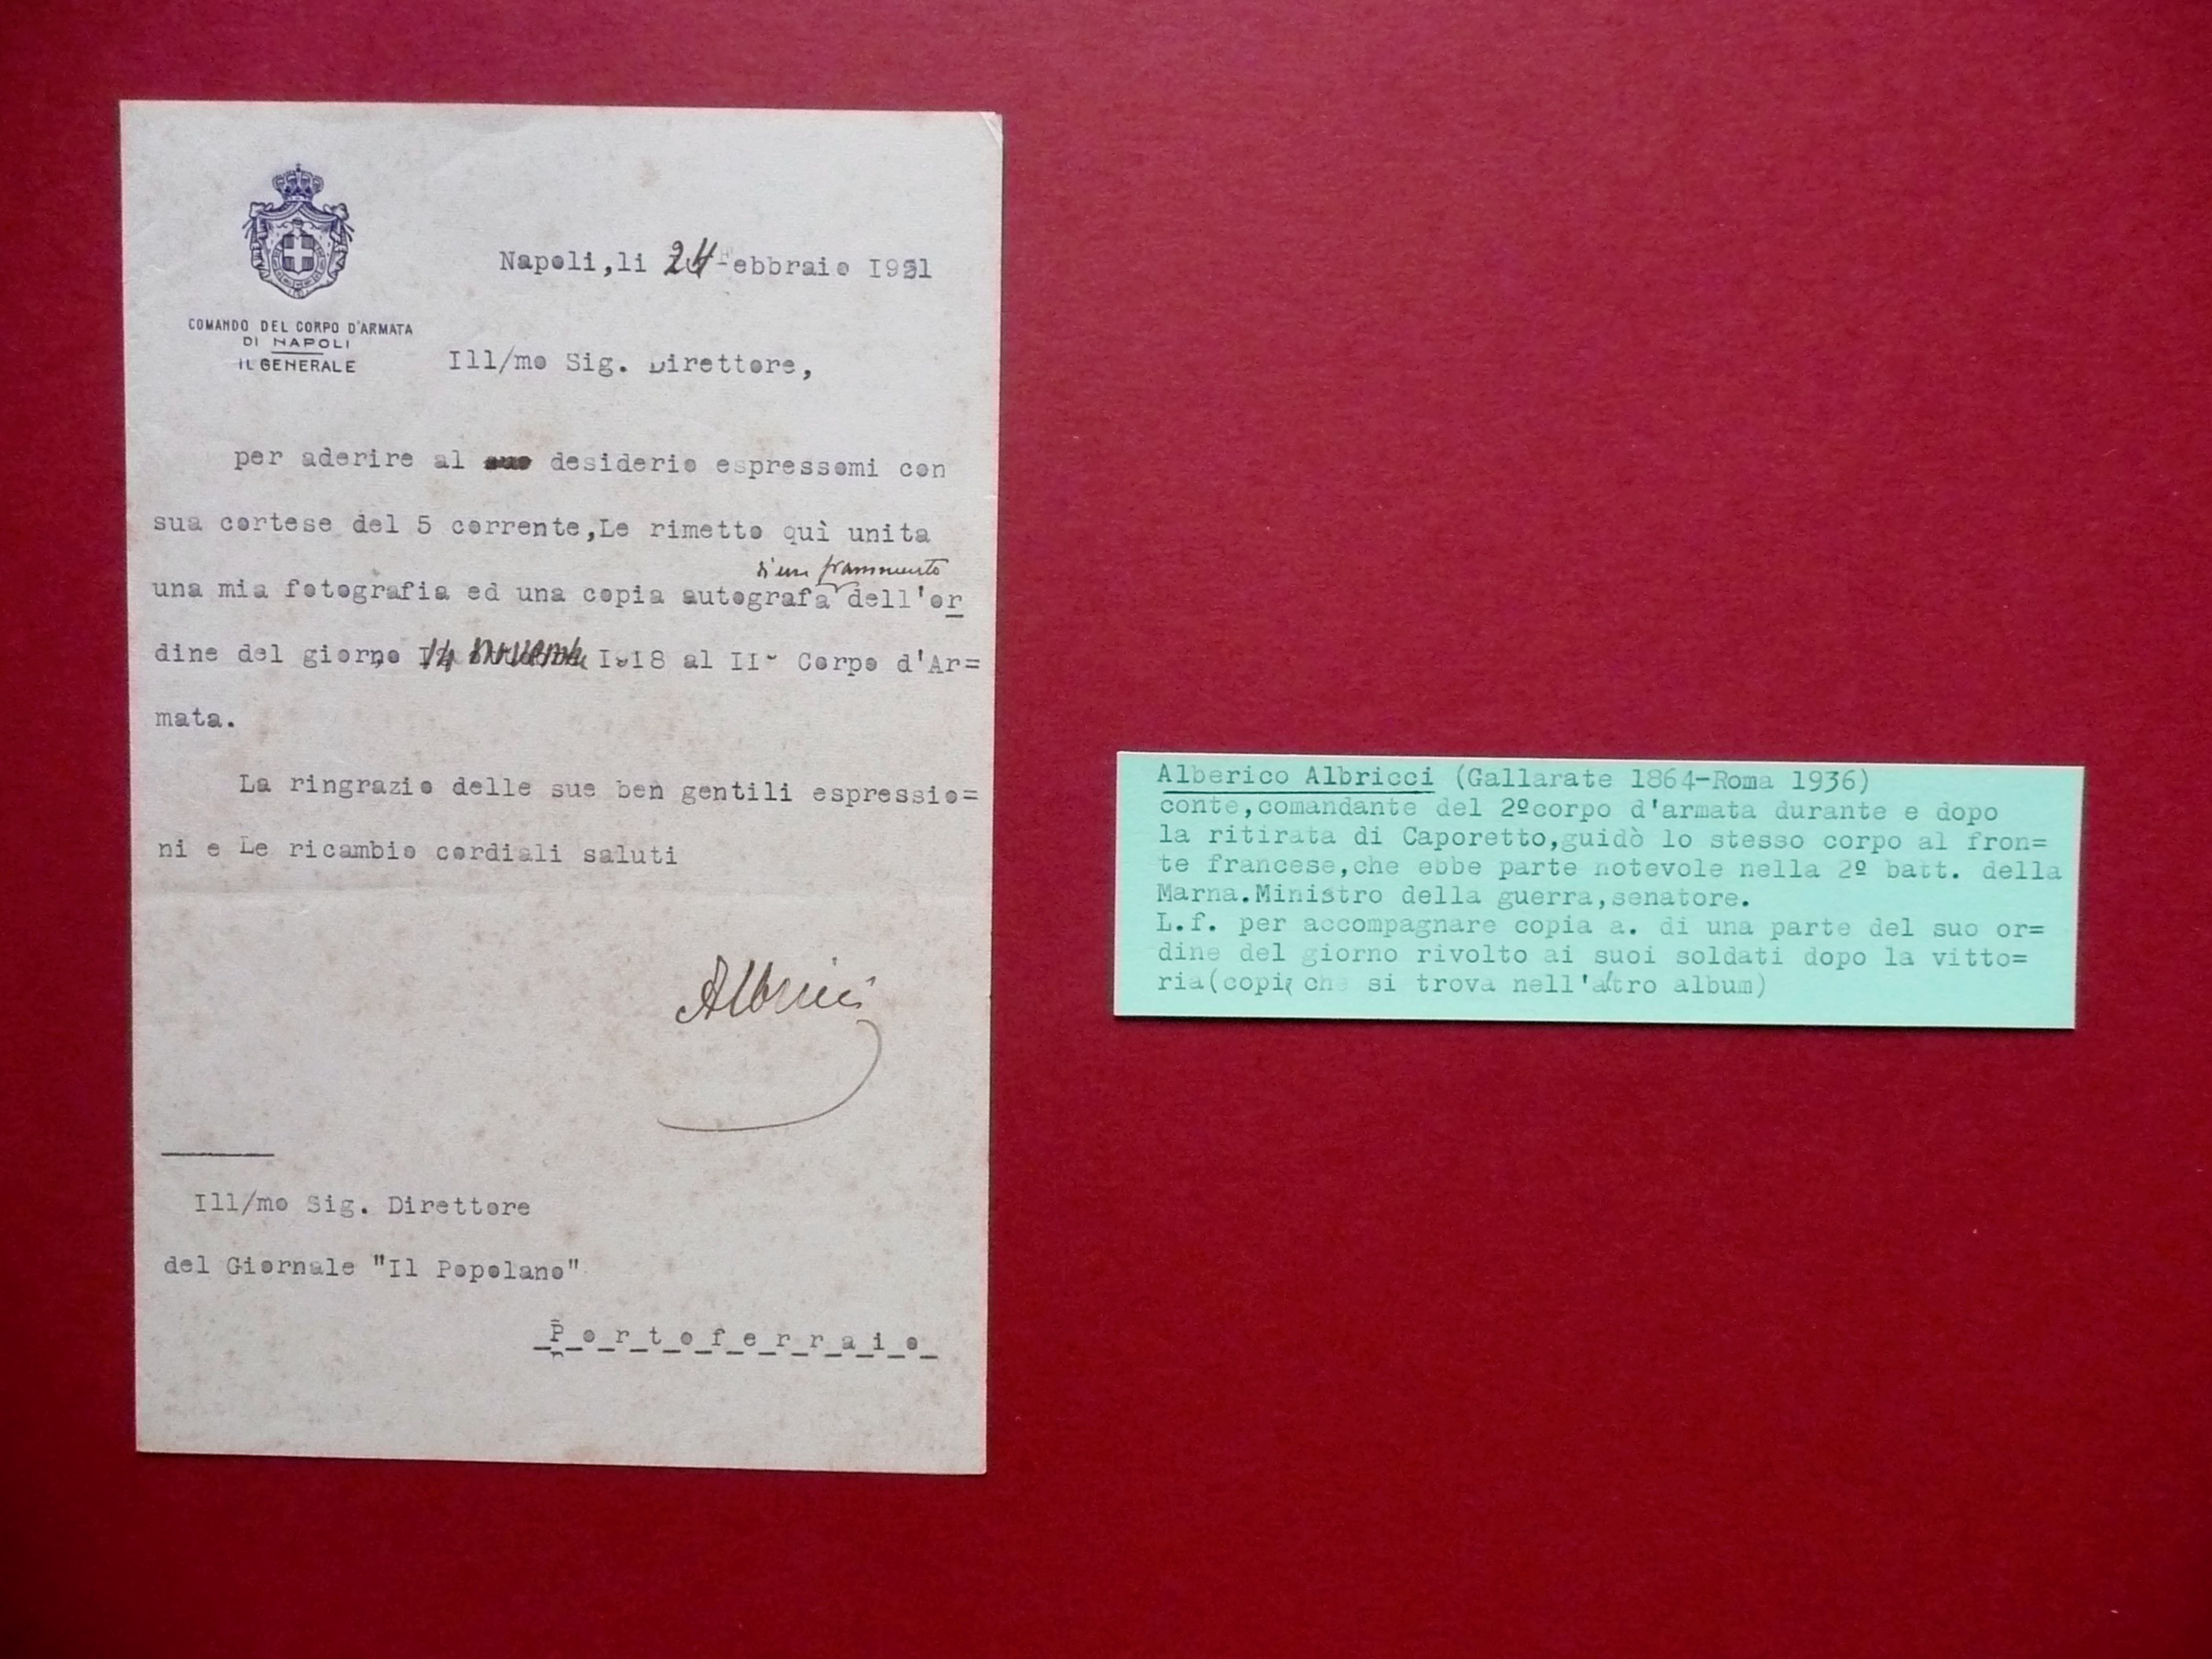 COMANDO DEL CORPO D'ARMATA
DI NAPOLI
IL GENERALE
Napoli,li 24 Febbraio 1921
Ill/mo Sig. Direttore,
per aderire al desiderio espressomi con
sua cortese del 5 corrente,Le rimetto quì unita
d'un frammento
una mia fotografia ed una copia autografa dell'or
dine del giorno 14 novembre I918 al II° Corpo d'Ar=
mata.
La ringrazio delle sue ben gentili espressio=
ni e Le ricambio cordiali saluti
Albricci
Ill/mo Sig. Direttore
del Giornale "Il Popolano"
Portoferraio
Alberico Albricci (Gallarate 1864-Roma 1936)
conte,comandante del 2ºcorpo d'armata durante e dopo
la ritirata di Caporetto,guidò lo stesso corpo al fron=
te francese,che ebbe parte notevole nella 2º batt. della
Marna.Ministro della guerra,senatore.
L.f. per accompagnare copia a. di una parte del suo or=
dine del giorno rivolto ai suoi soldati dopo la vitto=
ria(copia che si trova nell'altro album)